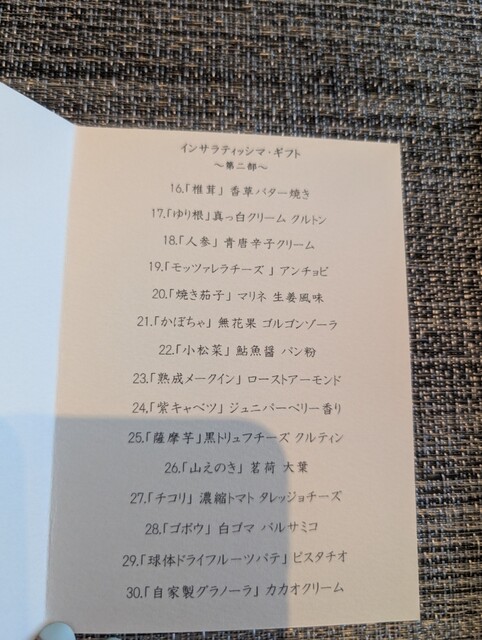 インサラティッシマ・ギフト
～第二部～
16.「椎茸」 香草バター焼き
17.「ゆり根」真っ白クリーム クルトン
18.「人参」 青唐辛子クリーム
19.「モッツァレラチーズ 」アンチョビ
20.「焼き茄子」 マリネ 生姜風味
21.「かぼちゃ」 無花果 ゴルゴンゾーラ
22.「小松菜」 鮎魚醤 パン粉
23.「熟成メークイン」 ローストアーモンド
24.「紫キャベツ」 ジュニパーベリー香り
25.「薩摩芋」黒トリュフチーズ クルティン
26.「山えのき」 茗荷 大葉
27.「チコリ」 濃縮トマト タレッジョチーズ
28.「ゴボウ」 白ゴマ バルサミコ
29.「球体ドライフルーツパテ」 ピスタチオ
30.「自家製グラノーラ」 カカオクリーム